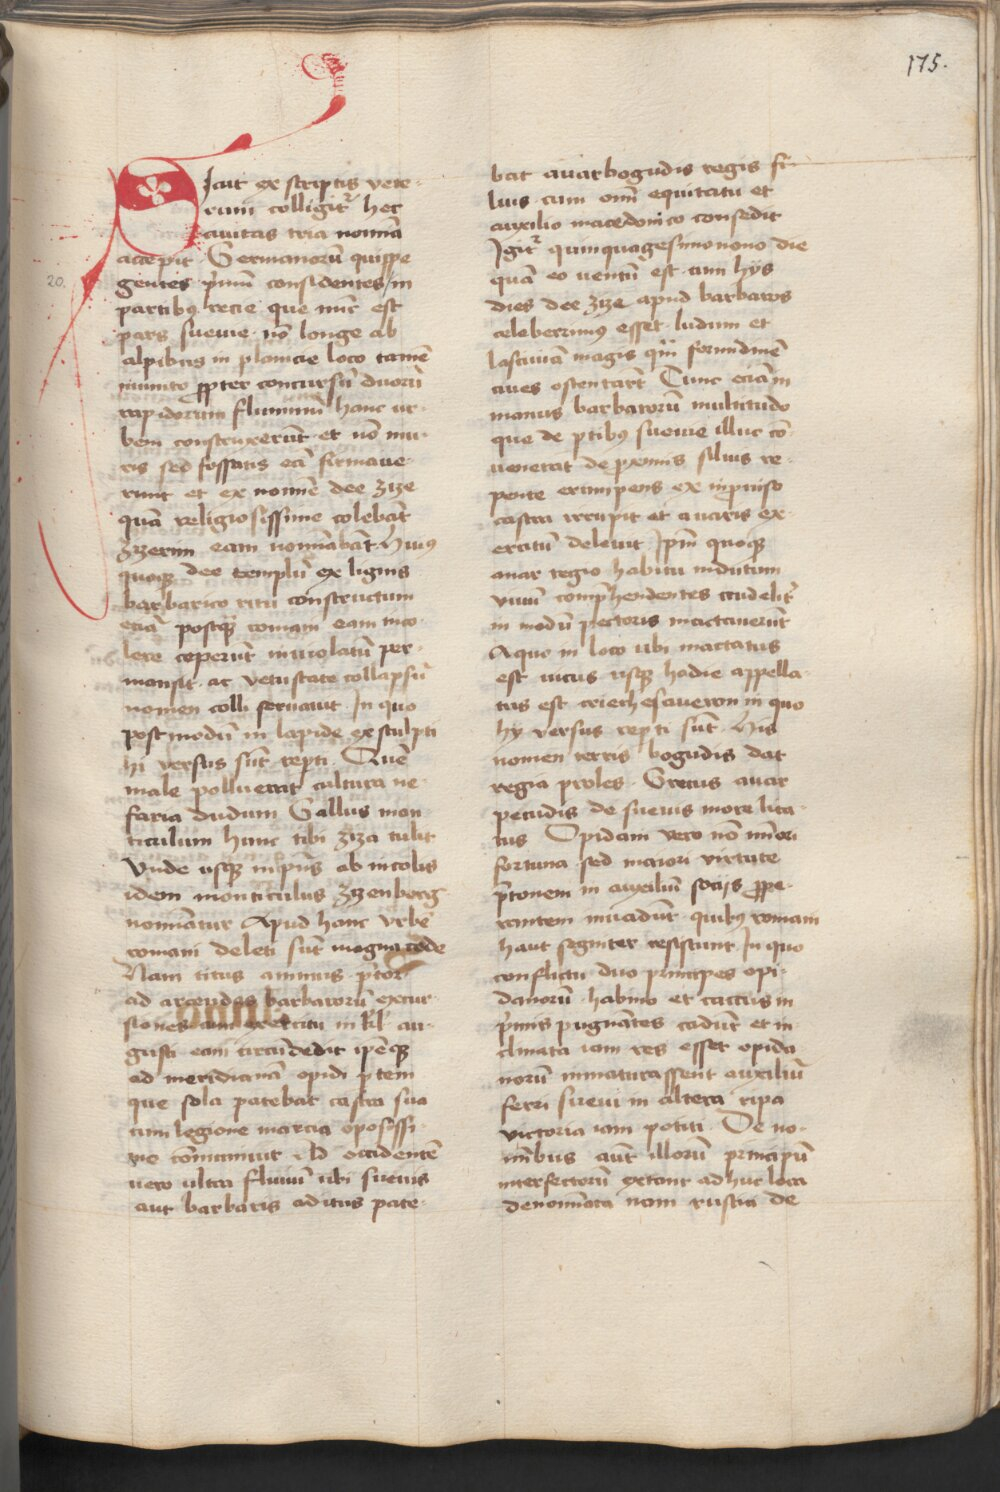 175.
Sicut ex scriptis vete-
rum colligit͛ hec
civitas tria nomīa
accepit Germanorū quippe
20.
gentes p̄mū considentes in
partibꝰ recie que nūc est
pars suevie nō longe ab
alpibus in planicie loco tamē
munito ꝓpter concursū duorū
rapidorum fluminū hanc ur-
bem construxerūt et nō mu-
ris sed fossatis eā firmave-
runt et ex nomīe dee zize
quā religiosissime colebāt
Zizerim eam nomīabāt Huiꝰ
quoqꝫ dee templū ex lignis
barbarico ritu constructum
eciā postqꝫ romani eam inco-
lere ceperūt inviolatū per-
mansit ac vetustate collapsū
nomen colli servavit In quo
postmodū in lapide exsculpti
hi versus sūt rep̄ti Quē
male polluerat cultura ne-
faria dudum Gallus mon
ticulum hunc tibi ziza tulit
Unde usqꝫ inp̄ns ab incolis
idem monticulus Zizenberg
nomīatur Apud hanc Urbē
romani deleti sūt magna cede
Nam titus annius p̄tor
ad arcendas barbarorū excur-
siones cum exercitu in kl͛ au-
gusti eam circūdedit ip̄eqꝫ
ad meridianā opidi p̄tem
que sola patebat castra sua
cum legione marcia oposissi-
me cōmunivit Ad occidentē
vero ultra fluviū ubi suevis
aut barbaris aditus pate-
bat avar bogudis regis fi-
lius cum om̄i equitatu et
auxilio macedonico consedit
Igit͛ quinquagesimonono die
quā eo ventū est cum hijs
dies dee zize apud barbaros
celeberrimꝰ esset ludum et
lasciviā magis qm̄ formidinē
cives ostentarūt Tunc eciā in
manus barbarorū multitudo
que de p̄tibꝰ suevie illuc cō-
venerat de p̄ximis silvis re-
pente erumpens ex inp̄viso
castra irrupit et avaris ex-
ercitū delevit Ip̄m quoqꝫ
avar regio habitu indutum
vivū comp̄hendentes crudelit͛
in modū pectoris mactaverūt
Aquo in loco ubi mactatus
est vicus usqꝫ hodie appella-
tus est criechesaveron in quo
hij versus rep̄ti sūt His
nomen terris bogudis dat
regia proles Grecus avar
pecudis de suevis more lita-
tus Opidani vero nō mīori
fortuna sed maiori virtute
p̄tonem in auxiliū socijs ꝓpe-
rantem invadūt quibꝰ romani
haut segniter resistunt In quo
conflictu duo principes opi-
danorū habino et caccus in
p̄mis pugnātes cadūt et in-
clinata iam res esset opida
norū ni maturassent auxiliū
ferri suevi in altera ripa
victoria iam potiti De no-
mībus aūt illorū principū
interfectorū extant adhuc loca
denomīata nam rustici de